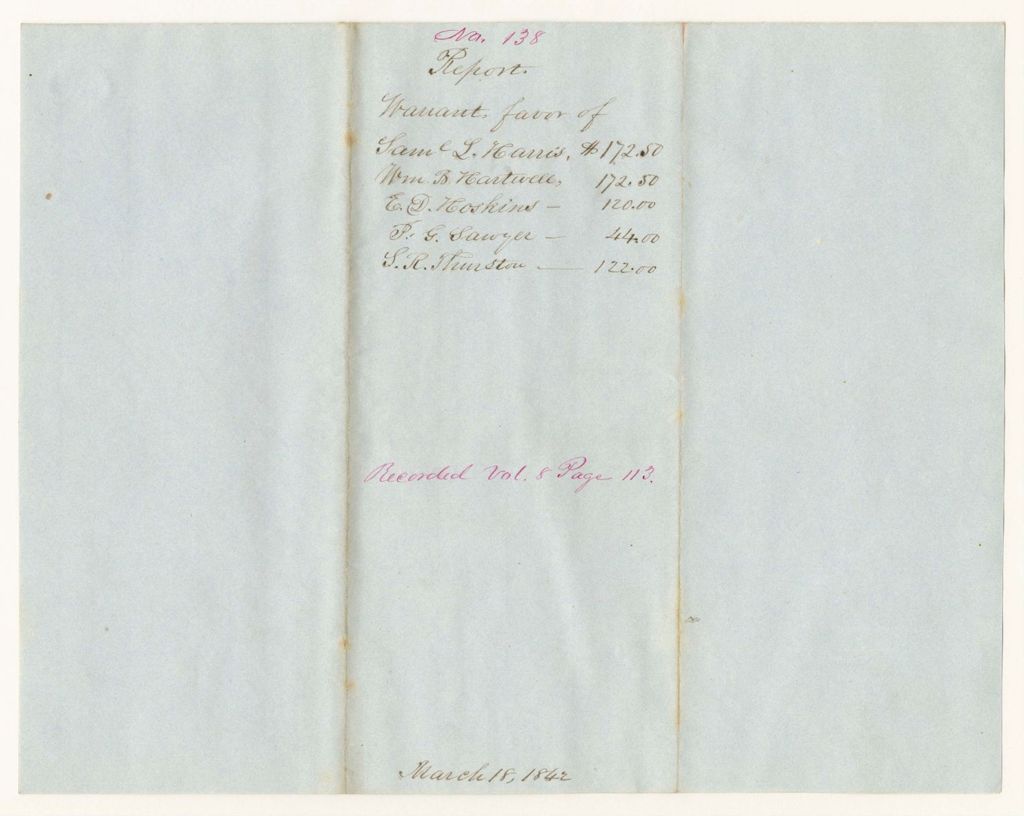 No. 138
Report.
Warrant favor of
Saml L. Harris, $172.50
Wm. B. Hartwell, 172.50
E. D. Hoskins — 120.00
F. G. Sawyer — 44.00
S. R. Thurston — 122.00
Recorded Vol. 8 Page 113.
March 18, 1842